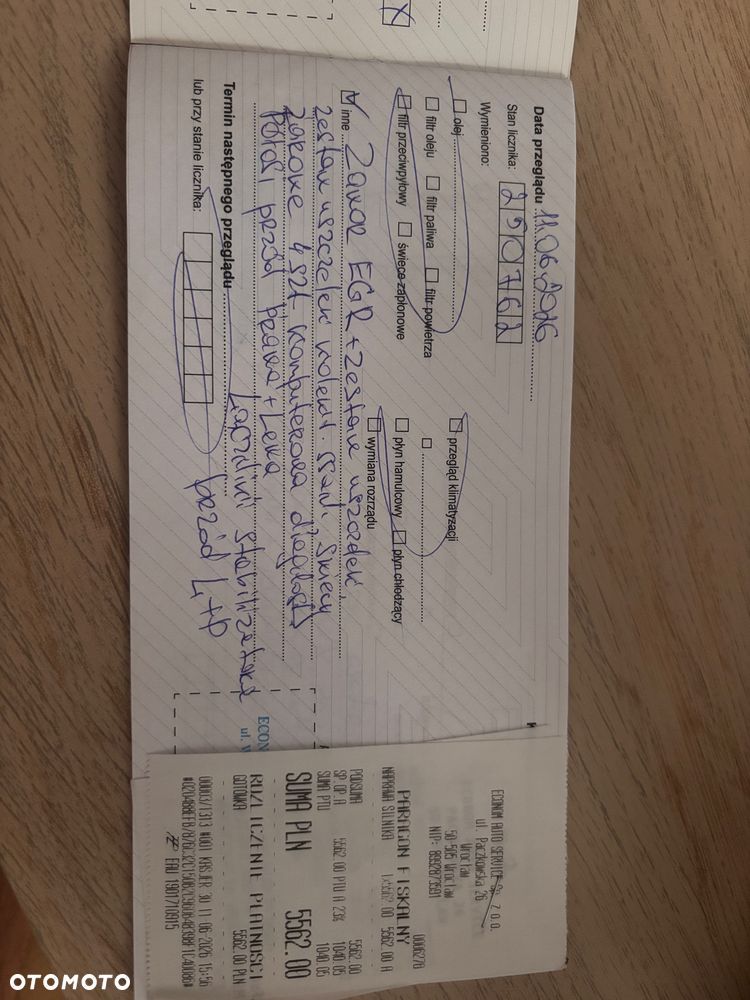 Data przeglądu 11.06.2026
Stan licznika: 250762
Wymieniono:
olej
filtr oleju filtr paliwa filtr powietrza
filtr przeciwpyłowy świece zapłonowe
przegląd klimatyzacji
płyn hamulcowy płyn chłodzący
wymiana rozrządu
inne Zawór EGR + zestaw uszczelek,
zestaw uszczelek kolekt. ssani. świecy
żarowe 4 szt. komputerowa
Półoś przód prawa + Lewa
Termin następnego przeglądu Łączniki stabilizatora
lub przy stanie licznika: przód L+P
ECON
ul. W
ECONOM AUTO SERVICE Sp. z o.o.
ul. Paczkowska 26
Wrocław
50-505 Wrocław
NIP: 8992873591
006278
PARAGON FISKALNY
NAPRAWA SILNIKA 1x5562.00 5562.00 A
PODSUMA 5562.00
SP.OP.A 5562.00 PTU A 23% 1040.05
SUMA PTU 1040.05
SUMA PLN 5562.00
ROZLICZENIE PŁATNOŚCI
GOTÓWKA 5562.00 PLN
00003/1313 #001 KASJER 30 11-06-2026 15:56
EAU 1901710915
OTOMOTO